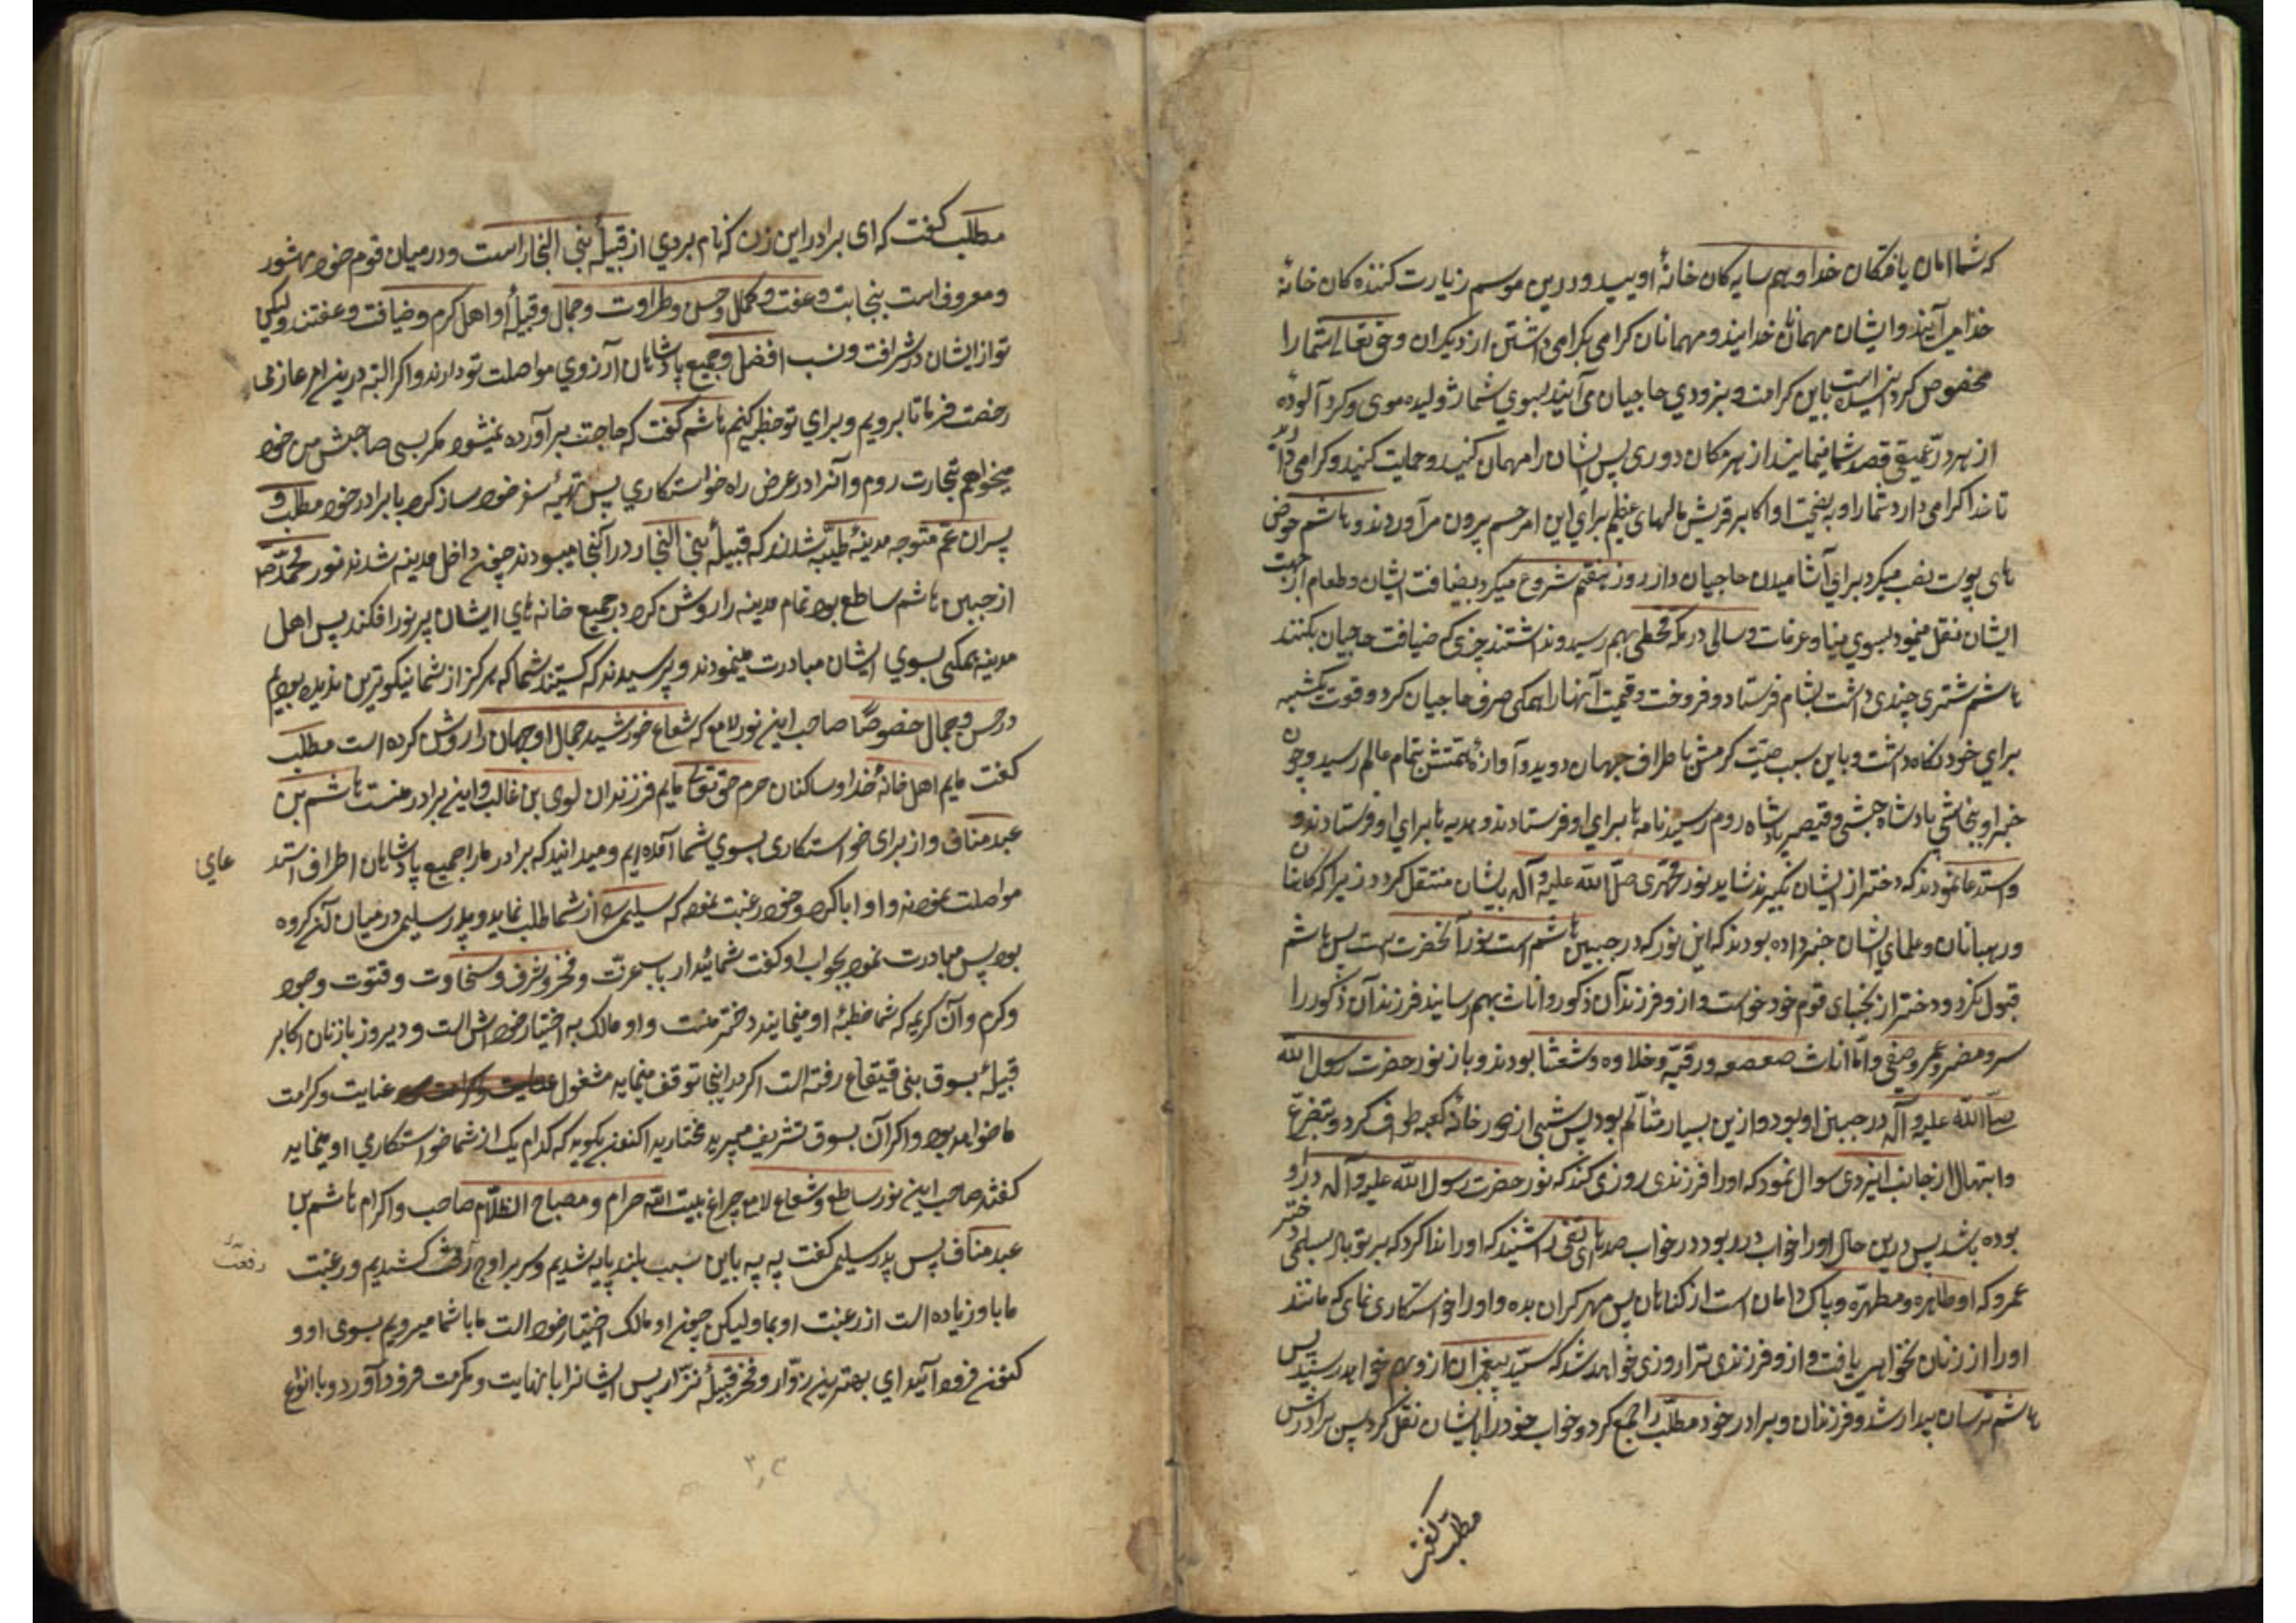 که شما امان یافتکان خدا و هم سایه کان خانهٔ اویید و درین موسم زیارت کننده کان خانهٔ
خدا می آیند و ایشان مهمانان خدایند و مهمانان کرامی بکرامی داشتن از دیکران و حق تعالی شما را
مخصوص کردانیده است باین کرامت و بزودی حاجیان می آیند بسوی شما ژولیده موی و کرد آلوده
از هر درّ عمیقی قصد شما مینمایند از هر مکان دوری پس ایشان را مهمان کنید و حمایت کنید و کرامی دارید
تا خدا کرامی دارد شما را و اکابر قریش مالهای عظیم برای این امر بیرون می آوردند و هاشم حوض
های پوست نصب میکرد برای آشامیدن حاجیان و از روز هفتم شروع میکرد بضیافت ایشان و طعام از جهت
ایشان نقل مینمود بسوی منا و عرفات و سالی در مکه قحطی بهم رسید و نداشتند چیزی که ضیافت حاجیان بکنند
هاشم شتری چندی داشت بشام فرستاد و فروخت و قیمت آنها را همکی صرف حاجیان کرد و قوت یکشبه
برای خود نکاه نداشت و باین سبب صیت کرمش باطراف جهان دوید و آوازهٔ همتش بتمام عالم رسید و چون
خبر او بنجاشی پادشاه حبشی و قیصر پادشاه روم رسید نامه ها برای او فرستادند و هدیه ها برای او فرستادند و
و استدعا نمودند که دختر از ایشان بکیرند شاید نور محمّدی صلّی الله علیه و آله بایشان منتقل کردد زیرا که کاهنان
و رهبانان و علمای ایشان خبر داده بودند که این نور که در جبین هاشم است نور آنحضرت است پس هاشم
قبول نکرد و دختر از نجبای قوم خود خواست و از و فرزندان ذکور و اناث بهم رسانید فرزندان ذکور را
سر و مضر و عمرو صفی و امّا اناث صعصعه و رقیّه و خلاوه و شعثا بودند و باز نور حضرت رسول الله
صلّی الله علیه و آله در جبین او بود و ازین بسیار متألّم بود پس شبی از دور خانهٔ کعبه طوف کرد و بتضرّع
و ابتهال از جانب ایزدی سوال نمود که او را فرزندی روزی کند که نور حضرت رسول الله علیه و آله در او
بوده باشد پس درین حال او را خواب در ربود در خواب صدای هاتفی را شنید که او را ندا کرد که بر تو باد بسلمی دختر
عمرو که او طاهره و مطهرّه و پاک دامان است از کناهان پس مهر کران بده و او را خواستکاری نمای که مانند
او را از زنان نخواهی یافت و از و فرزندی ترا روزی خواهد شد که سیّد پیغمبران ازو بهم خواهد رسید پس
هاشم ترسان بیدار شد و فرزندان و برادر خود مطلّب را جمع کرد و خواب خود را بایشان نقل کرد پس برادرش
مطلب کفت
مطلب کفت که ای برادر این زن که نام بردی از قبیلهٔ بنی النجار است و در میان قوم خود مشهور
و معروف است بنجابت و عفت و کمال و حسن و طراوت و جمال و قبیلهٔ او اهل کرم و ضیافت و عفتند ولیکن
تو از ایشان در شرافت و نسب افضل و جمیع پادشاهان آرزوی مواصلت تو دارند و اکر البته درین امر عازمی
رخصت فرما تا برویم و برای تو خطبه کنیم هاشم کفت که حاجت بر آورده نمیشود مکر بسعی صاحبش من خود
میخواهم بتجارت روم و آنرا در عرض راه خواستکاری پس تهیهٔ سفر خود ساز کرد با برادر خود مطلب و
پسران عمّ متوجه مدینهٔ طیّبه شدند که قبیلهٔ بنی النجار در آنجا میبودند چون داخل مدینه شدند نور محمّد ص
از جبین هاشم ساطع بود تمام مدینه را روشن کرد در جمیع خانه های ایشان پرتو افکند پس اهل
مدینه همکی بسوی ایشان مبادرت مینمودند و پرسیدند که کیستید شما که هرکز از شما نیکوترین ندیده بودیم
در حسن و جمال خصوصًا صاحب این نور لامع که شعاع خورشید جمال او جهان را روشن کرده است مطلب
کفت مایم اهل خانهٔ خدا و ساکنان حرم حق تعالی مایم فرزندان لوی بن غالب و این برادر منست هاشم بن
عبد مناف و از برای خواستکاری بسوی شما آمده ایم و میدانید که برادر ما را جمیع پادشاهان اطراف استد
عای
مواصلت نمودند و او ابا کرد و خود رغبت نمود که سلیمی را از شما طلب نماید و پدر سلیمی در میان آن کروه
بود پس مبادرت نمود بجواب او کفت شمائید ارباب عزّت و فخر و شرف و سخاوت و فتوت و جود
و کرم و آن کریمه که شما خطبهٔ او مینمایید دختر منست و او مالک به اختیار خود است و دیروز با زنان اکابر
قبیله بسوق بنی قینقاع رفته است اکر در اینجا توقف مینمایید مشغول عنایت و کرامت
ما خواهد بود و اکر آن بسوق تشریف میبرید مختارید اکنون بکوید که کدام یک از شما خواستکاری او مینماید
کفتند صاحب این نور ساطع و شعاع لامع چراغ بیت الله حرام و مصباح الظلّام صاحب و اکرام هاشم بن
عبد مناف پس پدر سلیمی کفت به به باین سبب بلند پایه شدیم و سر بر اوج رفعت کشدیم و رغبت
رفعت
ما با و زیاده است از رغبت او بما ولیکن چون او مالک اختیار خود است ما با شما میرویم بسوی او و
کنون فرود آئید ای بهترین زوّار و فخر قبیلهٔ نزّار پس ایشانرا با نهایت و مکرمت فرود آورد و با انواع